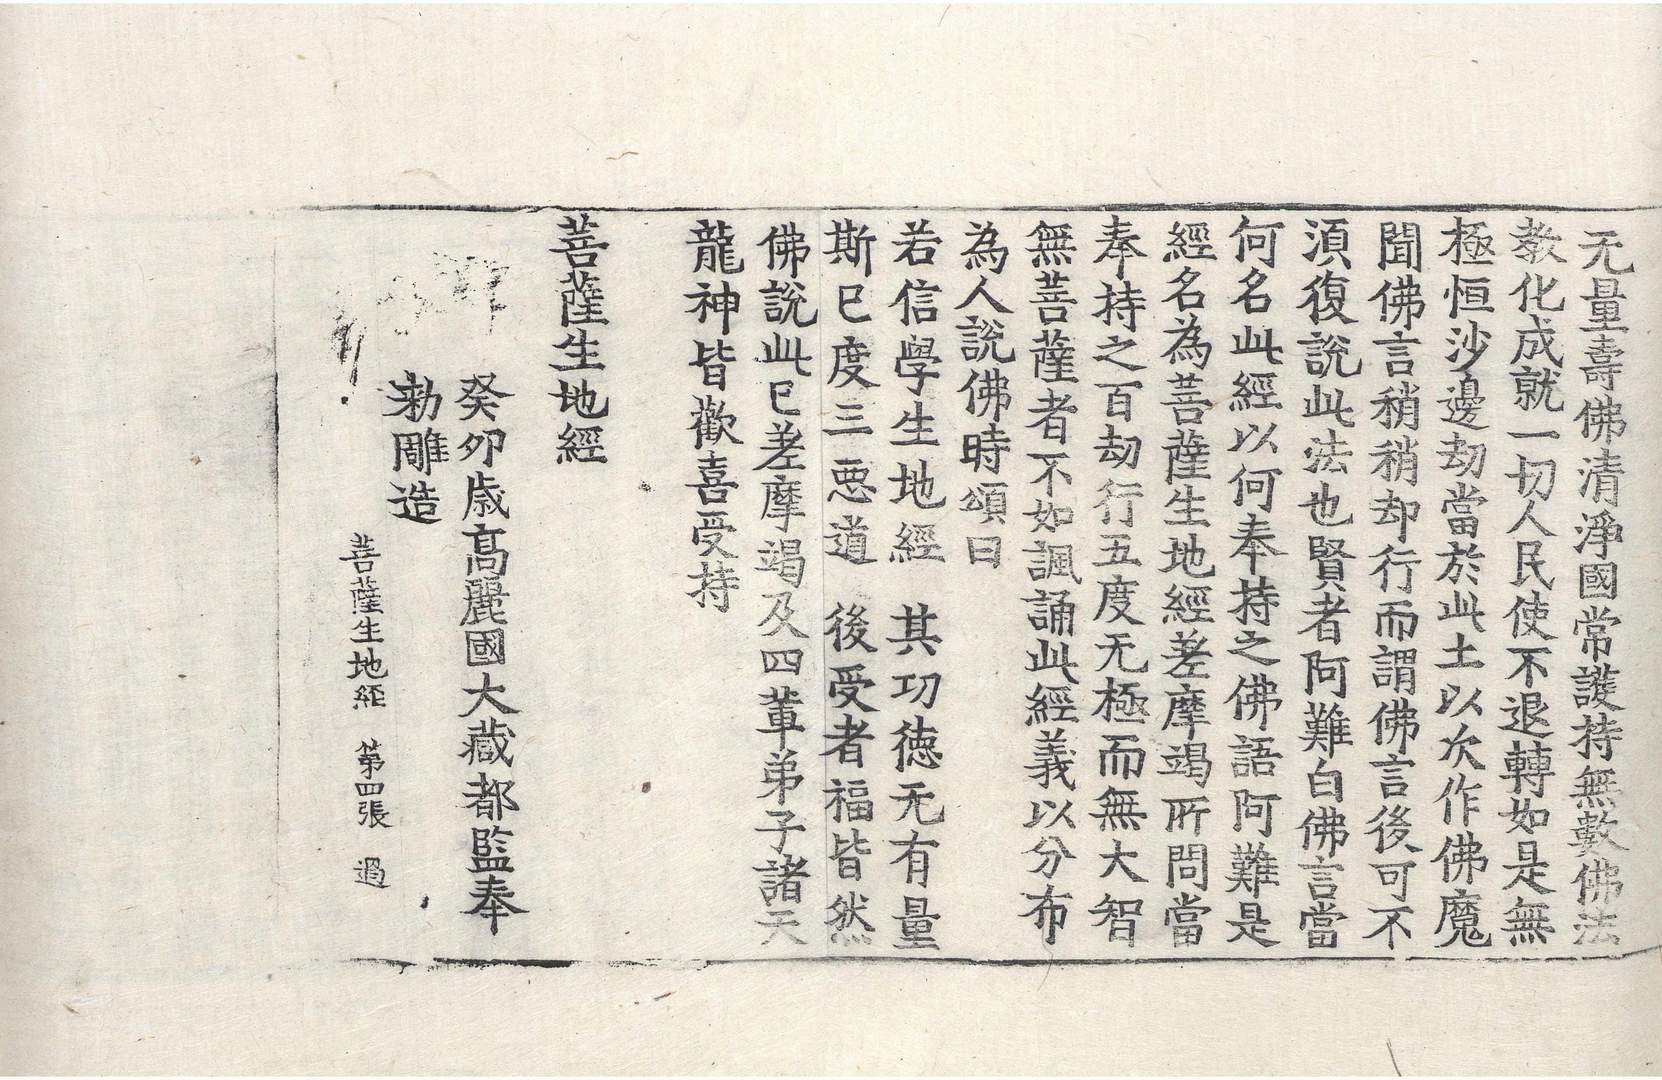 无量壽佛清淨國常護持無數佛法
教化成就一切人民使不退轉如是無
極恒沙邊劫當於此土以次作佛魔
聞佛言稍稍却行而謂佛言後可不
湏復說此法也賢者阿難白佛言當
何名此經以何奉持之佛語阿難是
經名為菩薩生地經差摩竭所問當
奉持之百劫行五度无極而無大智
無菩薩者不如諷誦此經義以分布
為人說佛時頌曰
若信學生地經　其功德无有量
斯已度三惡道　後受者福皆然
佛說此已差摩竭及四輩弟子諸天
龍神皆歡喜受持
菩薩生地經
癸卯歲高麗國大藏都監奉
勅雕造
菩薩生地經　第四張　過